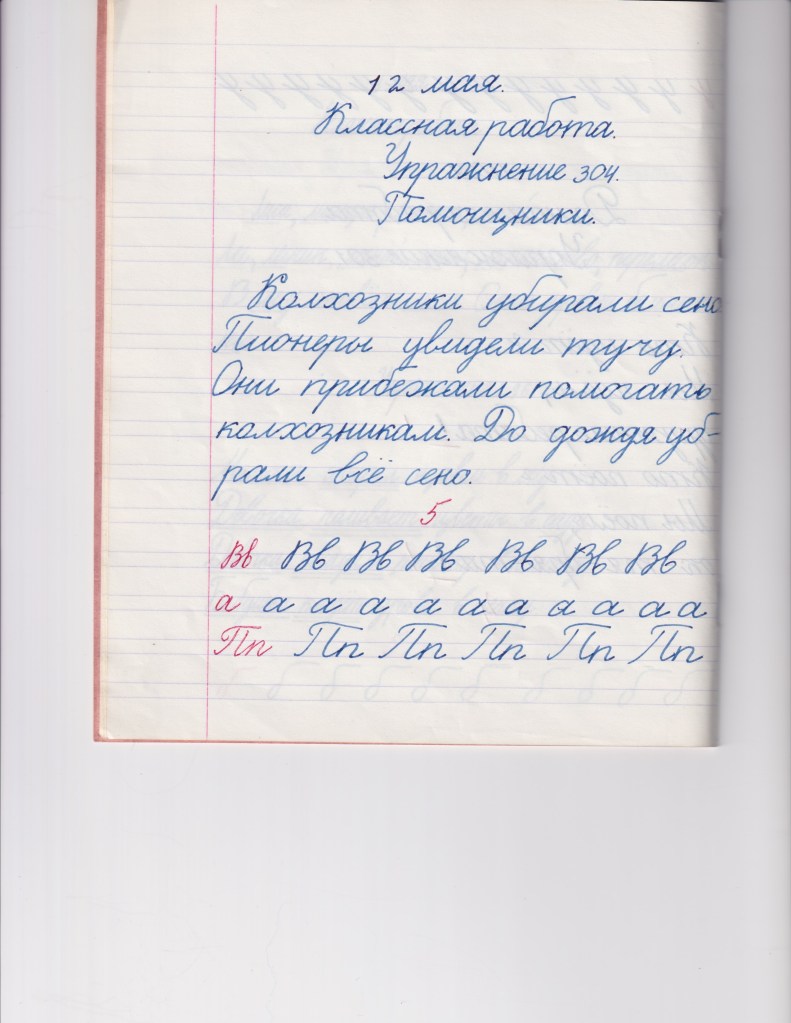 12 мая.
Классная работа.
Упражнение 304.
Помощники.
Колхозники убирали сено
Пионеры увидели тучу.
Они прибежали помогать
колхозникам. До дождя уб-
рали всё сено.
5
Вв Вв Вв Вв Вв Вв Вв
а а а а а а а а а а а
Пп Пп Пп Пп Пп Пп